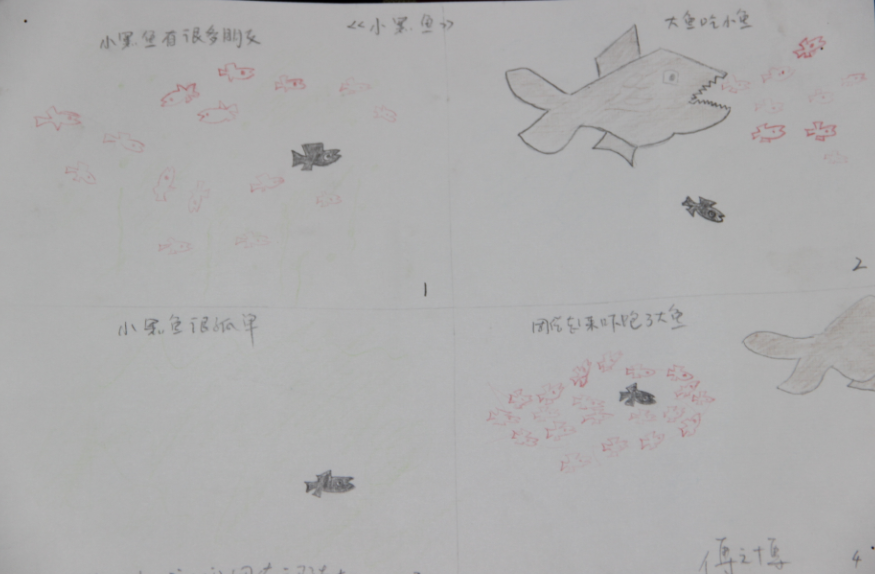 《小黑鱼》
小黑鱼有很多朋友
1
大鱼吃小鱼
2
小黑鱼很孤单
团结起来吓跑了大鱼
傅之博
4